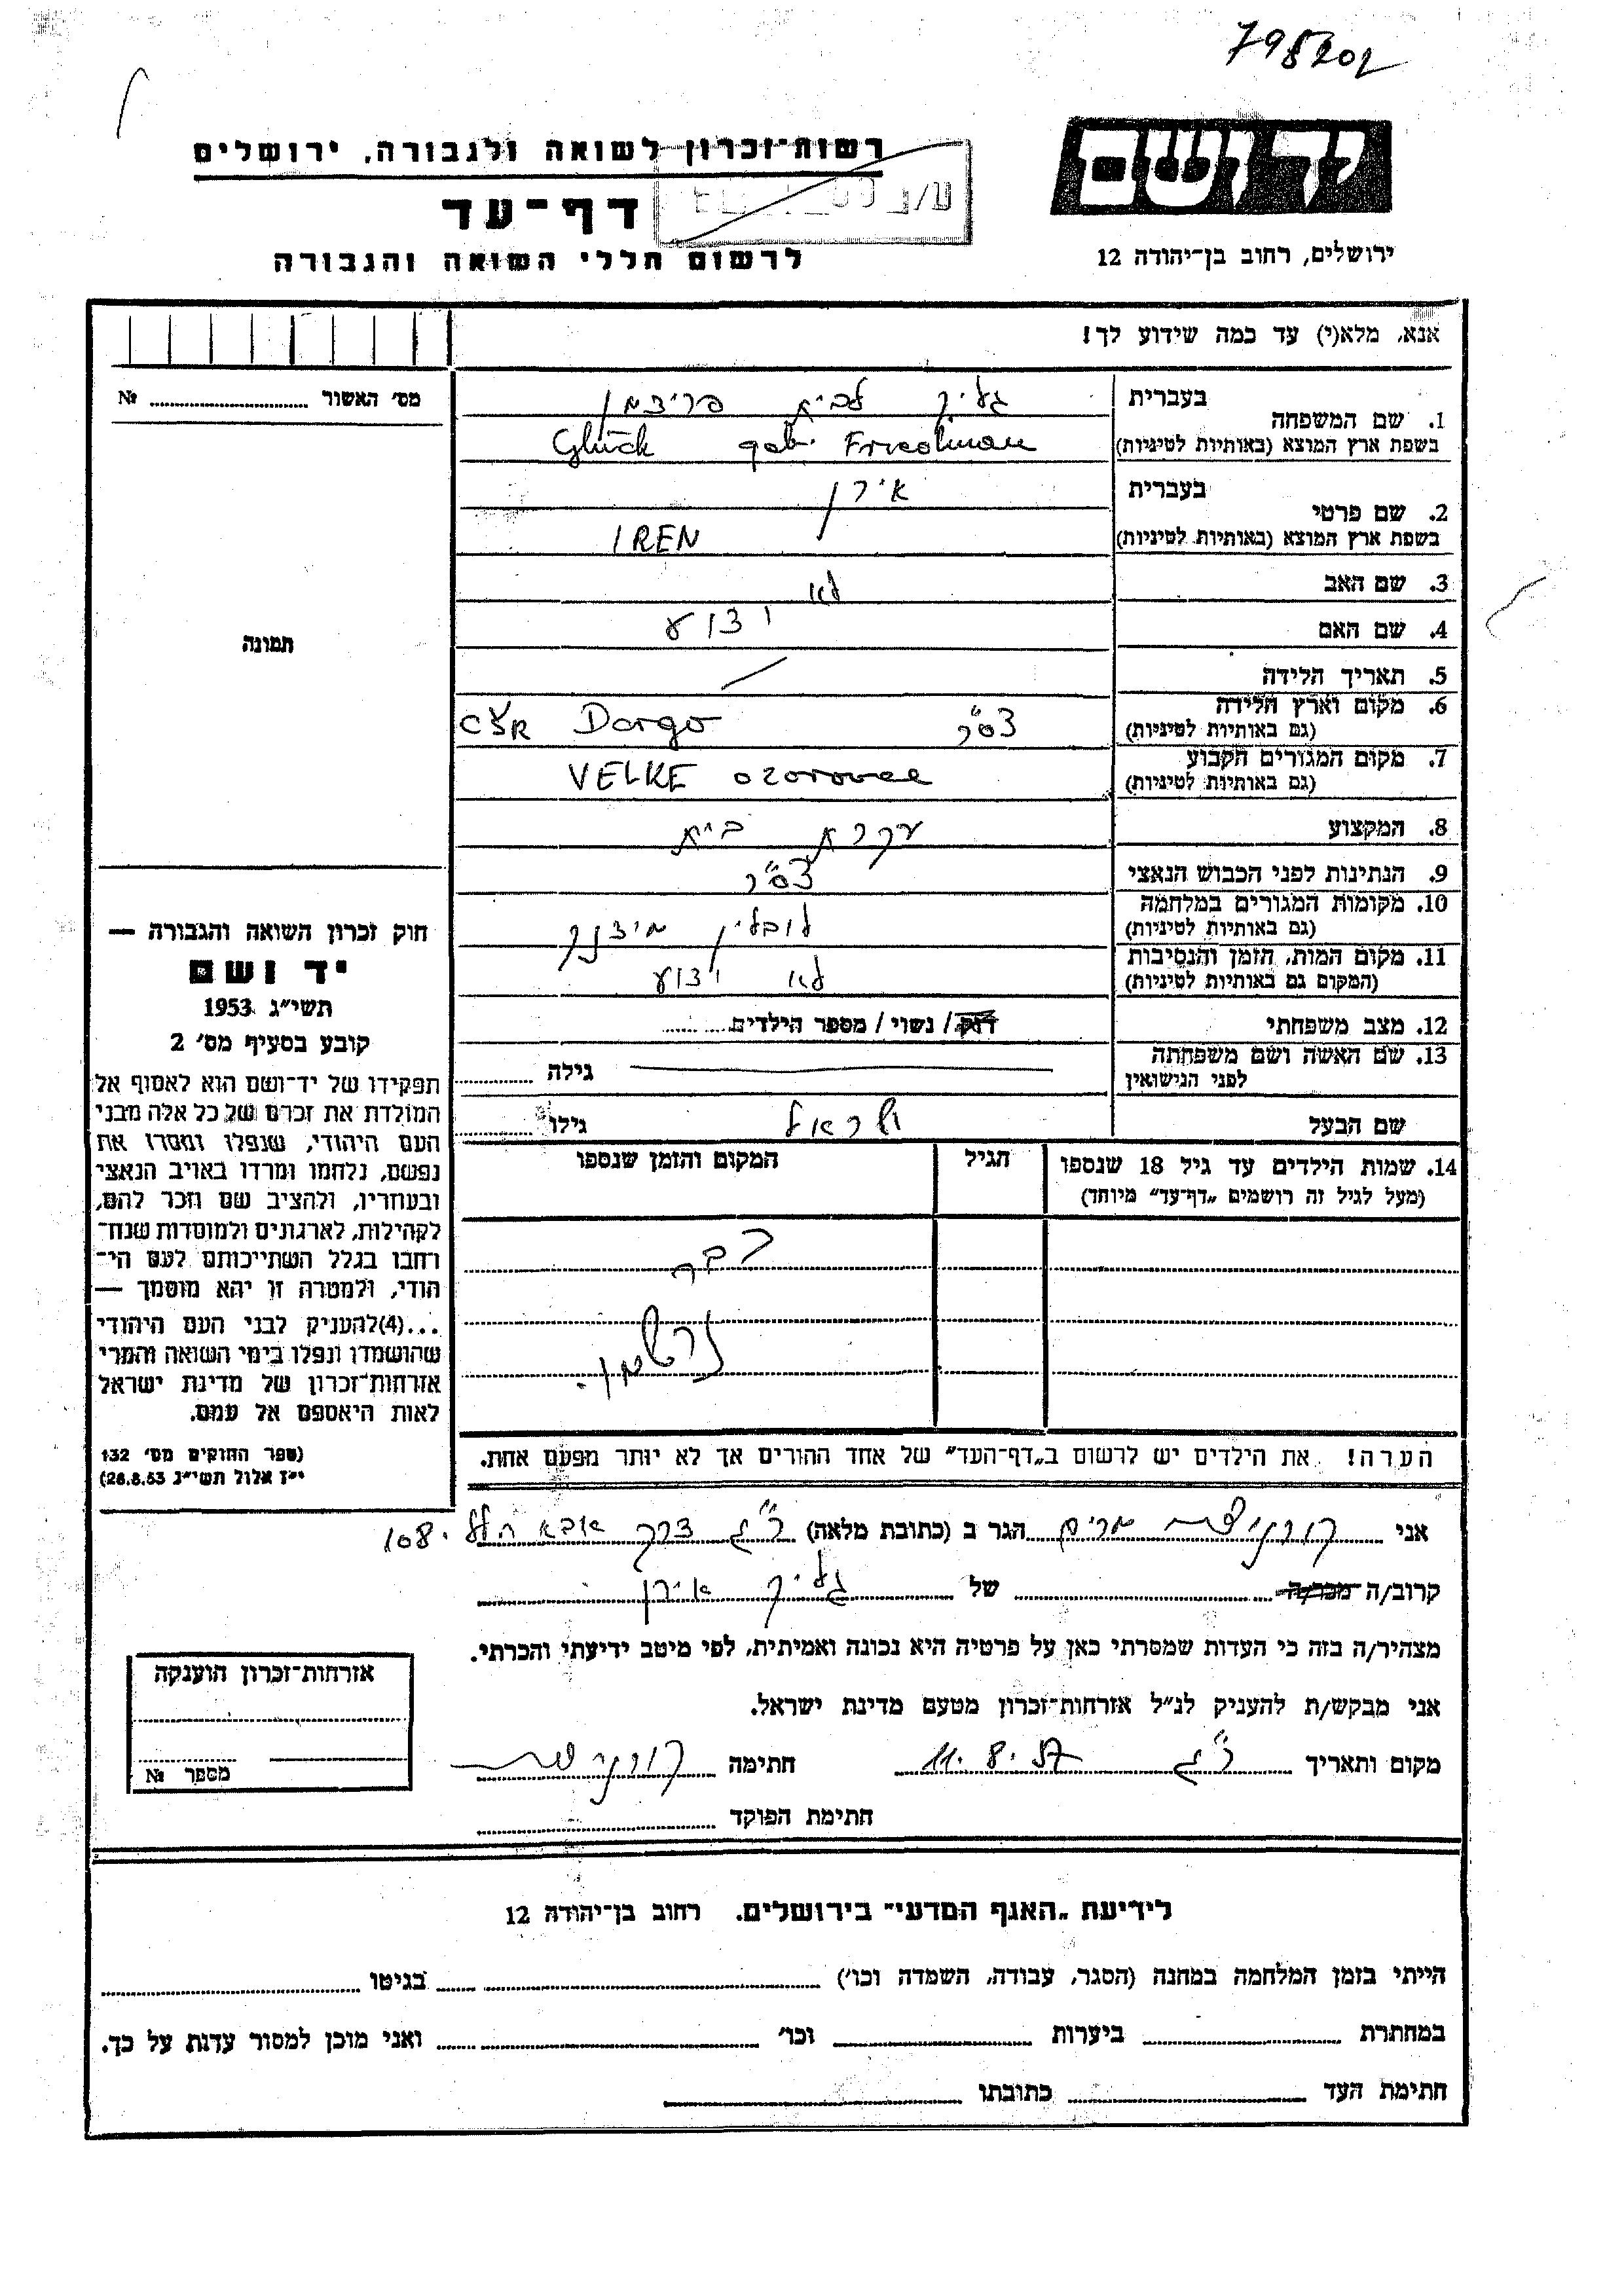 798202
רשות־זכרון לשואה ולגבורה, ירושלים
יד ושם
דף־עד
לרשום חללי השואה והגבורה
ירושלים, רחוב בן־יהודה 12
אנא, מלא(י) עד כמה שידוע לך!
מס׳ האשור № 
1. שם המשפחה
בעברית גליק לבית פרידמן
בשפת ארץ המוצא (באותיות לטיניות) Glück geb. Friedman
2. שם פרטי
בעברית אירן
בשפת ארץ המוצא (באותיות לטיניות) IREN
3. שם האב לא
4. שם האם ידוע
5. תאריך הלידה /
6. מקום וארץ הלידה צ׳ס״ר Dargo ČSR
(גם באותיות לטיניות)
7. מקום המגורים הקבוע VELKE ozorovce
(גם באותיות לטיניות)
8. המקצוע עקרת בית
9. הנתינות לפני הכבוש הנאצי צ׳ס״ר
10. מקומות המגורים במלחמה לובלין מידנק
(גם באותיות לטיניות)
11. מקום המות, הזמן והנסיבות לא ידוע
(המקום גם באותיות לטיניות)
12. מצב משפחתי רוק/ נשוי / מספר הילדים
13. שם האשה ושם משפחתה
לפני הנישואין גילה
שם הבעל גילו
14. שמות הילדים עד גיל 18 שנספו
(מעל לגיל זה רושמים „דף־עד״ מיוחד)
הגיל
המקום והזמן שנספו
כבר
נרשמו.
הערה! את הילדים יש לרשום ב„דף־העד״ של אחד ההורים אך לא יותר מפעם אחת.
תמונה
חוק זכרון השואה והגבורה —
יד ושם
תשי״ג 1953
קובע בסעיף מס׳ 2
תפקידו של יד־ושם הוא לאסוף אל
המולדת את זכרם של כל אלה מבני
העם היהודי, שנפלו ומסרו את
נפשם, נלחמו ומרדו באויב הנאצי
ובעוזריו, ולהציב שם וזכר להם,
לקהילות, לארגונים ולמוסדות שנח־
רחבו בגלל השתייכותם לעם הי־
הודי, ולמטרה זו יהא מוסמך —
...(4)להעניק לבני העם היהודי
שהושמדו ונפלו בימי השואה והמרי
אזרחות־זכרון של מדינת ישראל
לאות היאספם אל עמם.
(ספר החוקים מס׳ 132
י״ז אלול תשי״ג 28.8.53)
אני מרים הגר ב (כתובת מלאה) ר״ג דרך אבא הלל 108.
קרוב/ה מכר/ה של גליק אירן
מצהיר/ה בזה כי העדות שמסרתי כאן על פרטיה היא נכונה ואמיתית, לפי מיטב ידיעתי והכרתי.
אני מבקש/ת להעניק לנ״ל אזרחות־זכרון מטעם מדינת ישראל.
מקום ותאריך ר״ג 11.8.57 חתימה
חתימת הפוקד
אזרחות־זכרון הוענקה
מספר №
לידיעת „האגף המדעי״ בירושלים. רחוב בן־יהודה 12
הייתי בזמן המלחמה במחנה (הסגר, עבודה, השמדה וכו׳) בגיטו
במחתרת ביערות וכו׳ ואני מוכן למסור עדות על כך.
חתימת העד כתובתו